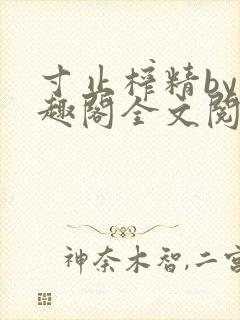 寸止榨精by
趣阁全文阅
神奈木智,二宫